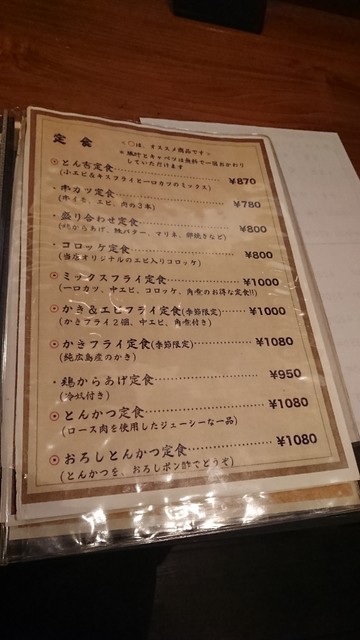 定食
◎は、オススメ商品です
御飯とキャベツは無料で一回おかわり
していただけます
◎とん吉定食 ¥870
(小エビ&キスフライと一口カツのミックス)
・串カツ定食 ¥780
エビ、肉の3本)
・盛り合わせ定食 ¥800
マリネ、
・コロッケ定食 ¥800
(当店オリジナルのエビ入りコロッケ)
◎ミックスフライ定食 ¥1000
(一口カツ、中エビ、コロッケ、角煮のお得な定食!!)
◎かき&エビフライ定食(季節限定) ¥1000
(かきフライ2個、中エビ、角煮付き)
◎かきフライ定食(季節限定) ¥1080
(純広島産のかき)
・鶏からあげ定食 ¥950
(冷奴付き)
◎とんかつ定食 ¥1080
(ロース肉を使用したジューシーな一品)
◎おろしとんかつ定食 ¥1080
(とんかつを、おろしポン酢でどうぞ)